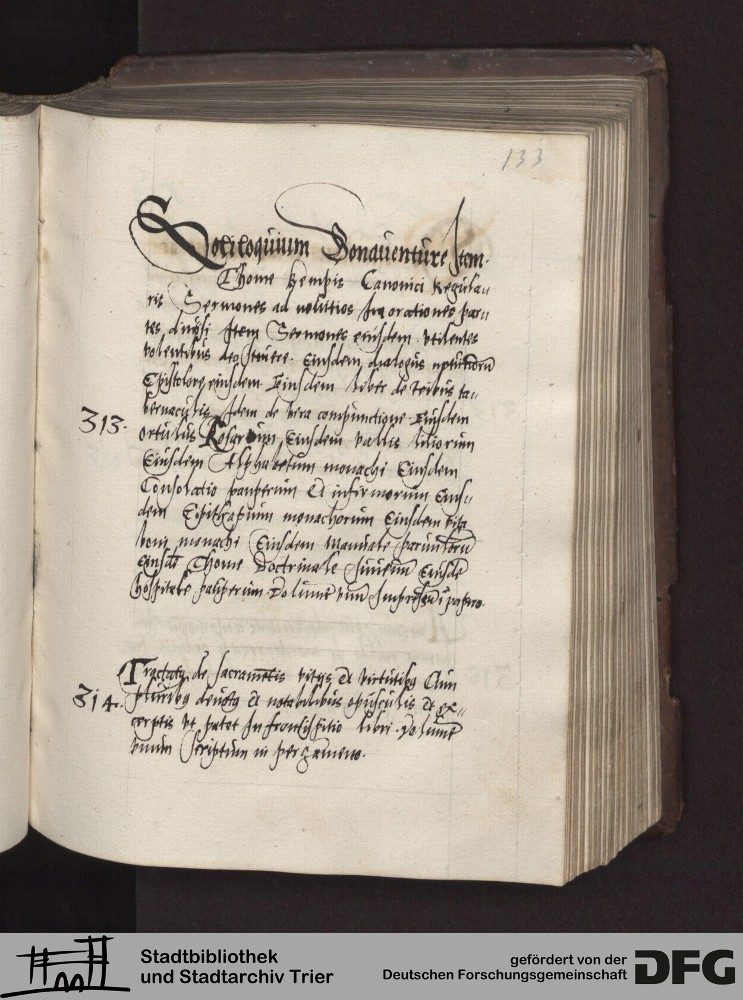 133
Soliloquium Bonauenture Item
Thome kempis Canonici Regula
ris Sermones ad nouitios Inq orationes par
tes diuisi Item Sermones eiusdem vtilentes
volentibus deo seruire. Eiusdem dialogus nouitiorū
Epistolarū eiusdem Eiusdem liber de tribus ta
bernaculis Idem de vera compunctione Eiusdem
313.
ortulus Rosarum Eiusdem vallis liliorum
Eiusdem Alphabetum monachi Eiusdem
Consolatio pauperum Et infirmorum Eius
dem Epithaphium monachorum Eiusdem vita
boni monachi Eiusdem Manuale paruulorū
Eiusdē Thome Doctrinale Iuuenum Eiusdē
hospitale pauperum. Volumē vnū Impressū ī papiro.
Tractatꝯ de sacramētis vitijs Et virtutibꝯ Cum
314.
pluribꝯ deuotꝭ Et notabilibus opusculis Et ex
cerptis vt patet In frontispitio libri. Volumē
vnum scriptum in pergameno.
Stadtbibliothek
und Stadtarchiv Trier
gefördert von der
Deutschen Forschungsgemeinschaft
DFG